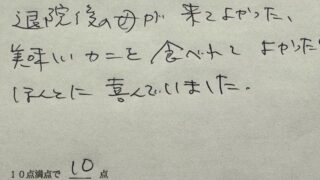 退院後の母が来てよかった、
美味しいカニを食べれてよかった
ほんとに喜んでいました.
10点満点で 10 点